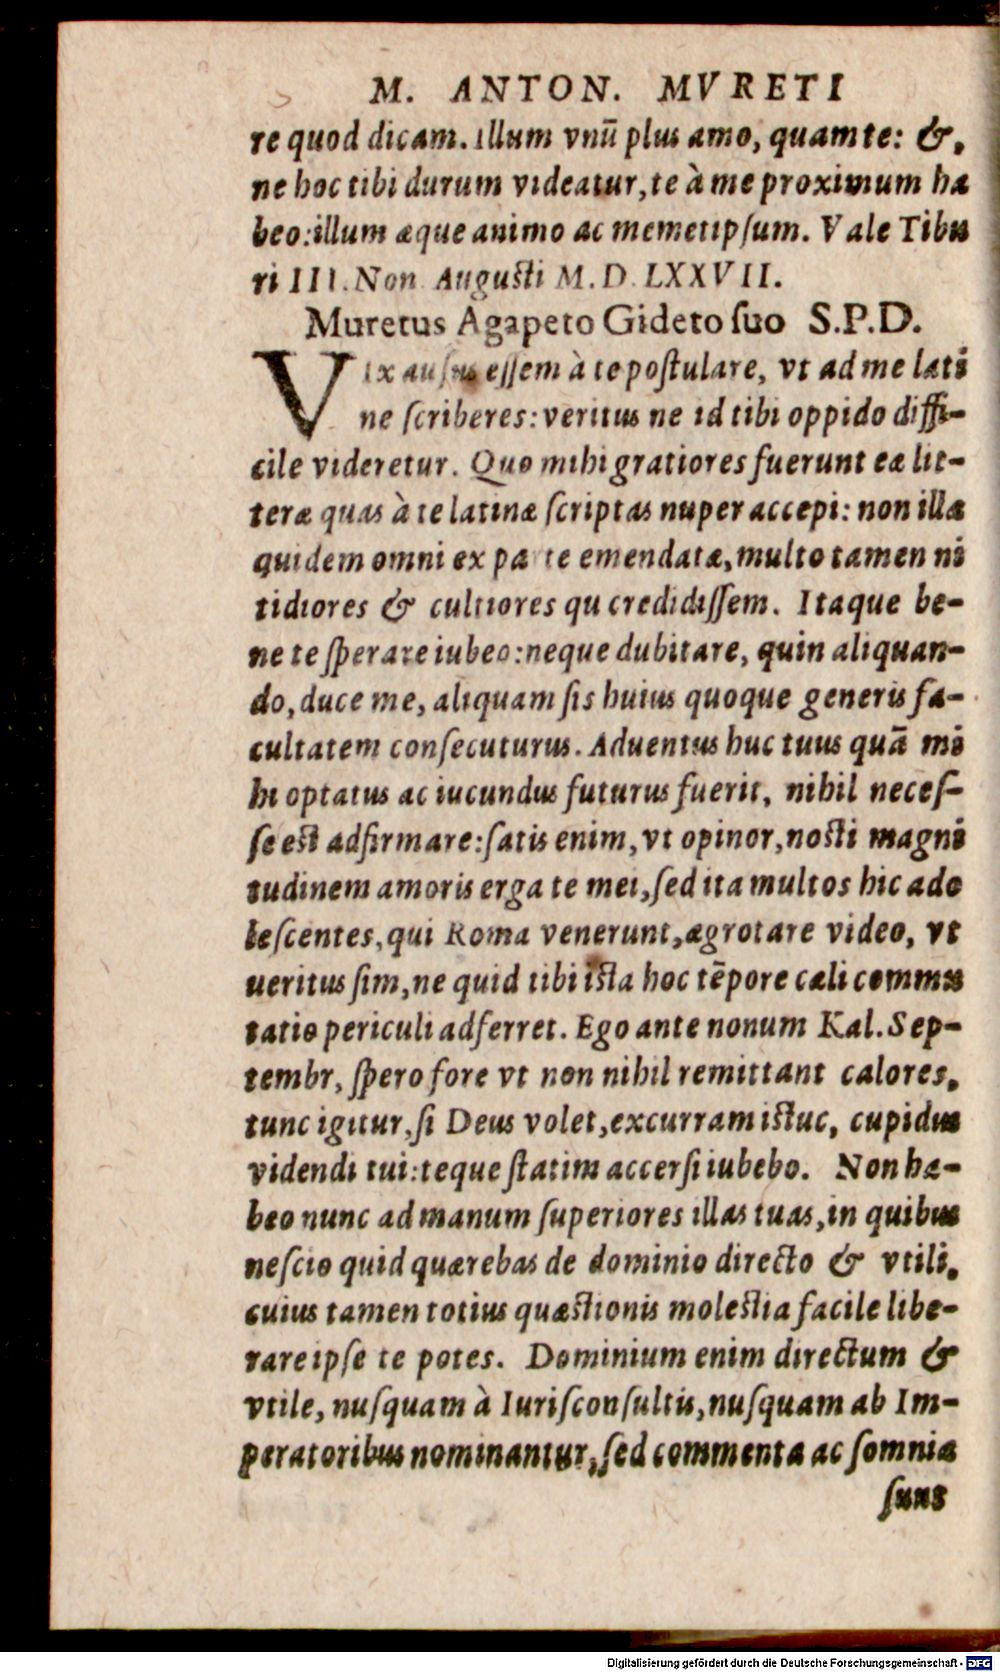 M. ANTON. MVRETI
re quod dicam. illum vnũ plus amo, quam te: &,
ne hoc tibi durum videatur, te à me proximum ha
beo: illum æque animo ac memetipsum. Vale Tibu
ri III. Non. Augusti M. D. LXXVII.
Muretus Agapeto Gideto suo S.P.D.
VIx ausus essem à te postulare, vt ad me lati
ne scriberes: veritus ne id tibi oppido diffi-
cile videretur. Quo mihi gratiores fuerunt eæ lit-
teræ quas à te latinæ scriptas nuper accepi: non illæ
quidem omni ex parte emendatæ, multo tamen ni
tidiores & cultiores qu credidissem. Itaque be-
ne te sperare iubeo: neque dubitare, quin aliquan-
do, duce me, aliquam sis huius quoque generis fa-
cultatem consecuturus. Aduentus huc tuus quã mi
hi optatus ac iucundus futurus fuerit, nihil neces-
se est adfirmare: satis enim, vt opinor, nosti magni
tudinem amoris erga te mei, sed ita multos hic ado
lescentes, qui Roma venerunt, ægrotare video, vt
ueritus sim, ne quid tibi ista hoc tẽpore cæli commu
tatio periculi adferret. Ego ante nonum Kal. Sep-
tembr, spero fore vt non nihil remittant calores,
tunc igitur, si Deus volet, excurram istuc, cupidus
videndi tui: teque statim accersi iubebo. Non ha-
beo nunc ad manum superiores illas tuas, in quibus
nescio quid quærebas de dominio directo & vtili,
cuius tamen totius quæstionis molestia facile libe-
rare ipse te potes. Dominium enim directum &
vtile, nusquam à Iurisconsultis, nusquam ab Im-
peratoribus nominantur, sed commenta ac somnia
sunt
Digitalisierung gefördert durch die Deutsche Forschungsgemeinschaft - DFG